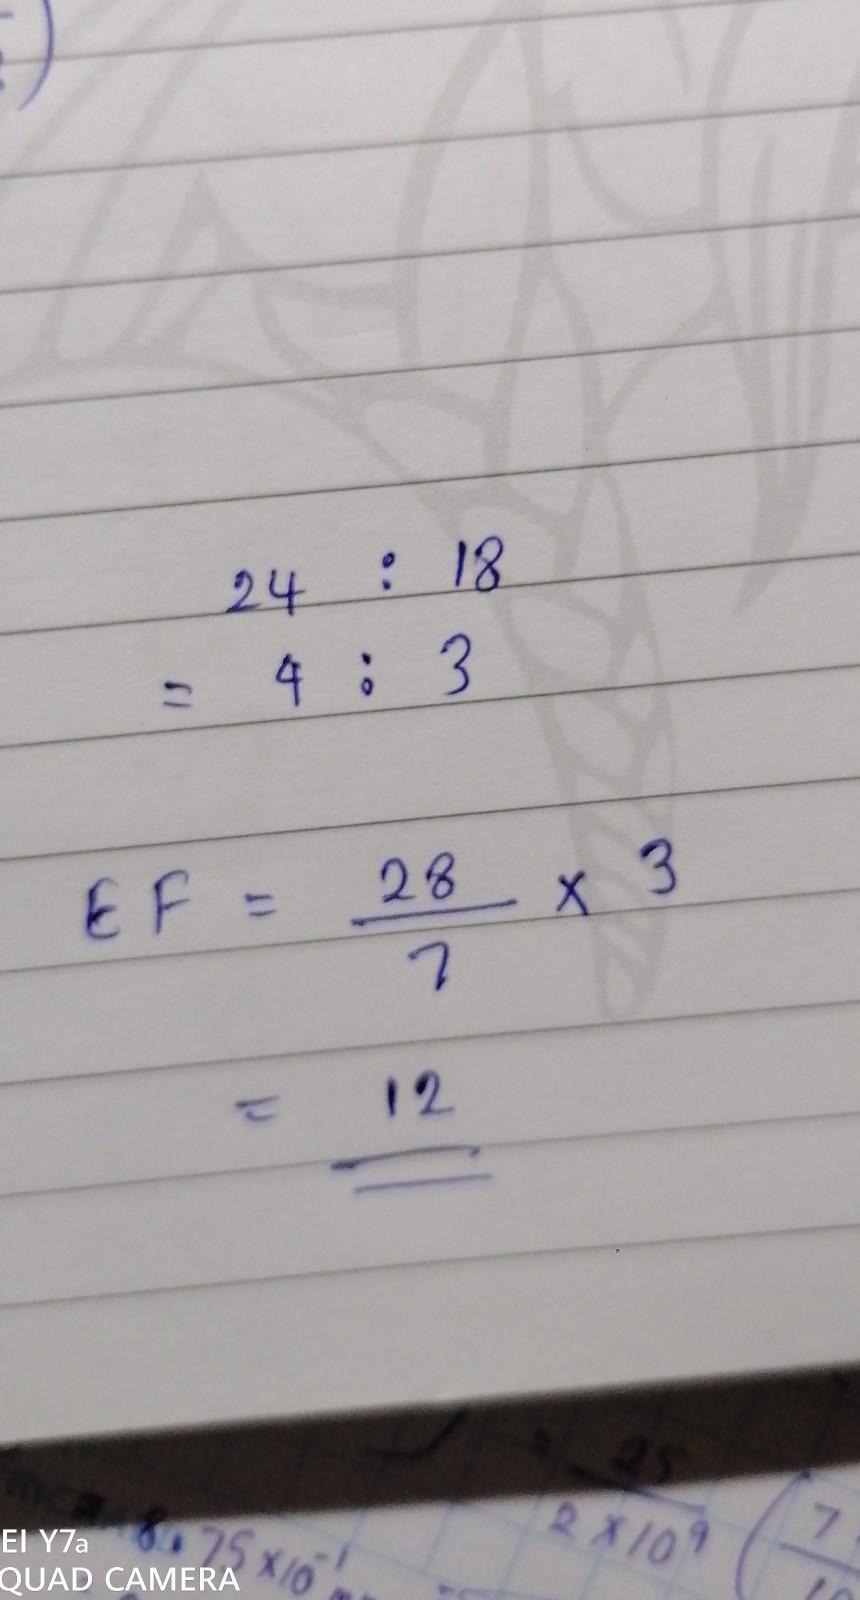 )
24 : 18
= 4 : 3
EF = 28/7 × 3
= 12
= 25
2 × 10⁹ ( 7
8.75 × 10⁻¹
EI Y7a
QUAD CAMERA